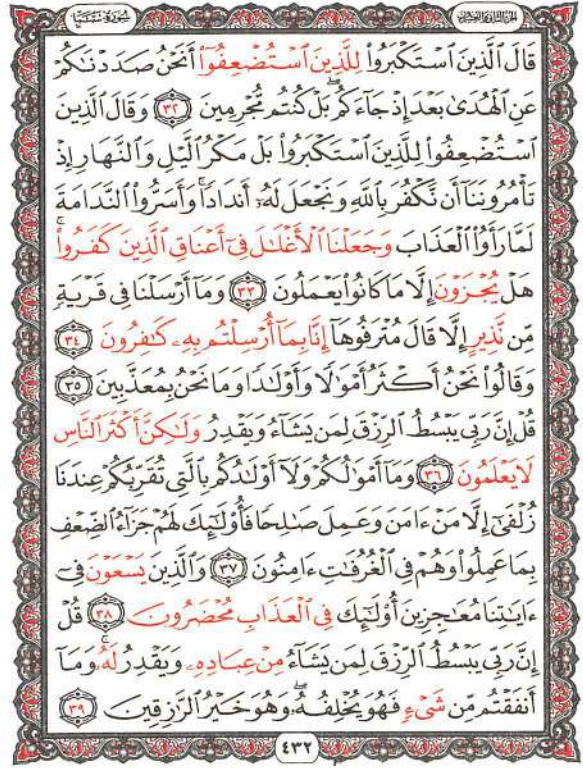 الجزء الثاني والعشرون
سورة سبإ
قَالَ ٱلَّذِينَ ٱسْتَكْبَرُوا۟ لِلَّذِينَ ٱسْتُضْعِفُوٓا۟ أَنَحْنُ صَدَدْنَـٰكُمْ
عَنِ ٱلْهُدَىٰ بَعْدَ إِذْ جَآءَكُم ۖ بَلْ كُنتُم مُّجْرِمِينَ ٣٢ وَقَالَ ٱلَّذِينَ
ٱسْتُضْعِفُوا۟ لِلَّذِينَ ٱسْتَكْبَرُوا۟ بَلْ مَكْرُ ٱلَّيْلِ وَٱلنَّهَارِ إِذْ
تَأْمُرُونَنَآ أَن نَّكْفُرَ بِٱللَّهِ وَنَجْعَلَ لَهُۥٓ أَندَادًا ۚ وَأَسَرُّوا۟ ٱلنَّدَامَةَ
لَمَّا رَأَوُا۟ ٱلْعَذَابَ وَجَعَلْنَا ٱلْأَغْلَـٰلَ فِىٓ أَعْنَاقِ ٱلَّذِينَ كَفَرُوا۟ ۚ
هَلْ يُجْزَوْنَ إِلَّا مَا كَانُوا۟ يَعْمَلُونَ ٣٣ وَمَآ أَرْسَلْنَا فِى قَرْيَةٍ
مِّن نَّذِيرٍ إِلَّا قَالَ مُتْرَفُوهَآ إِنَّا بِمَآ أُرْسِلْتُم بِهِۦ كَـٰفِرُونَ ٣٤
وَقَالُوا۟ نَحْنُ أَكْثَرُ أَمْوَٰلًا وَأَوْلَـٰدًا وَمَا نَحْنُ بِمُعَذَّبِينَ ٣٥
قُلْ إِنَّ رَبِّى يَبْسُطُ ٱلرِّزْقَ لِمَن يَشَآءُ وَيَقْدِرُ وَلَـٰكِنَّ أَكْثَرَ ٱلنَّاسِ
لَا يَعْلَمُونَ ٣٦ وَمَآ أَمْوَٰلُكُمْ وَلَآ أَوْلَـٰدُكُم بِٱلَّتِى تُقَرِّبُكُمْ عِندَنَا
زُلْفَىٰٓ إِلَّا مَنْ ءَامَنَ وَعَمِلَ صَـٰلِحًا فَأُو۟لَـٰٓئِكَ لَهُمْ جَزَآءُ ٱلضِّعْفِ
بِمَا عَمِلُوا۟ وَهُمْ فِى ٱلْغُرُفَـٰتِ ءَامِنُونَ ٣٧ وَٱلَّذِينَ يَسْعَوْنَ فِىٓ
ءَايَـٰتِنَا مُعَـٰجِزِينَ أُو۟لَـٰٓئِكَ فِى ٱلْعَذَابِ مُحْضَرُونَ ٣٨ قُلْ
إِنَّ رَبِّى يَبْسُطُ ٱلرِّزْقَ لِمَن يَشَآءُ مِنْ عِبَادِهِۦ وَيَقْدِرُ لَهُۥ ۚ وَمَآ
أَنفَقْتُم مِّن شَىْءٍ فَهُوَ يُخْلِفُهُۥ ۖ وَهُوَ خَيْرُ ٱلرَّٰزِقِينَ ٣٩
٤٣٢